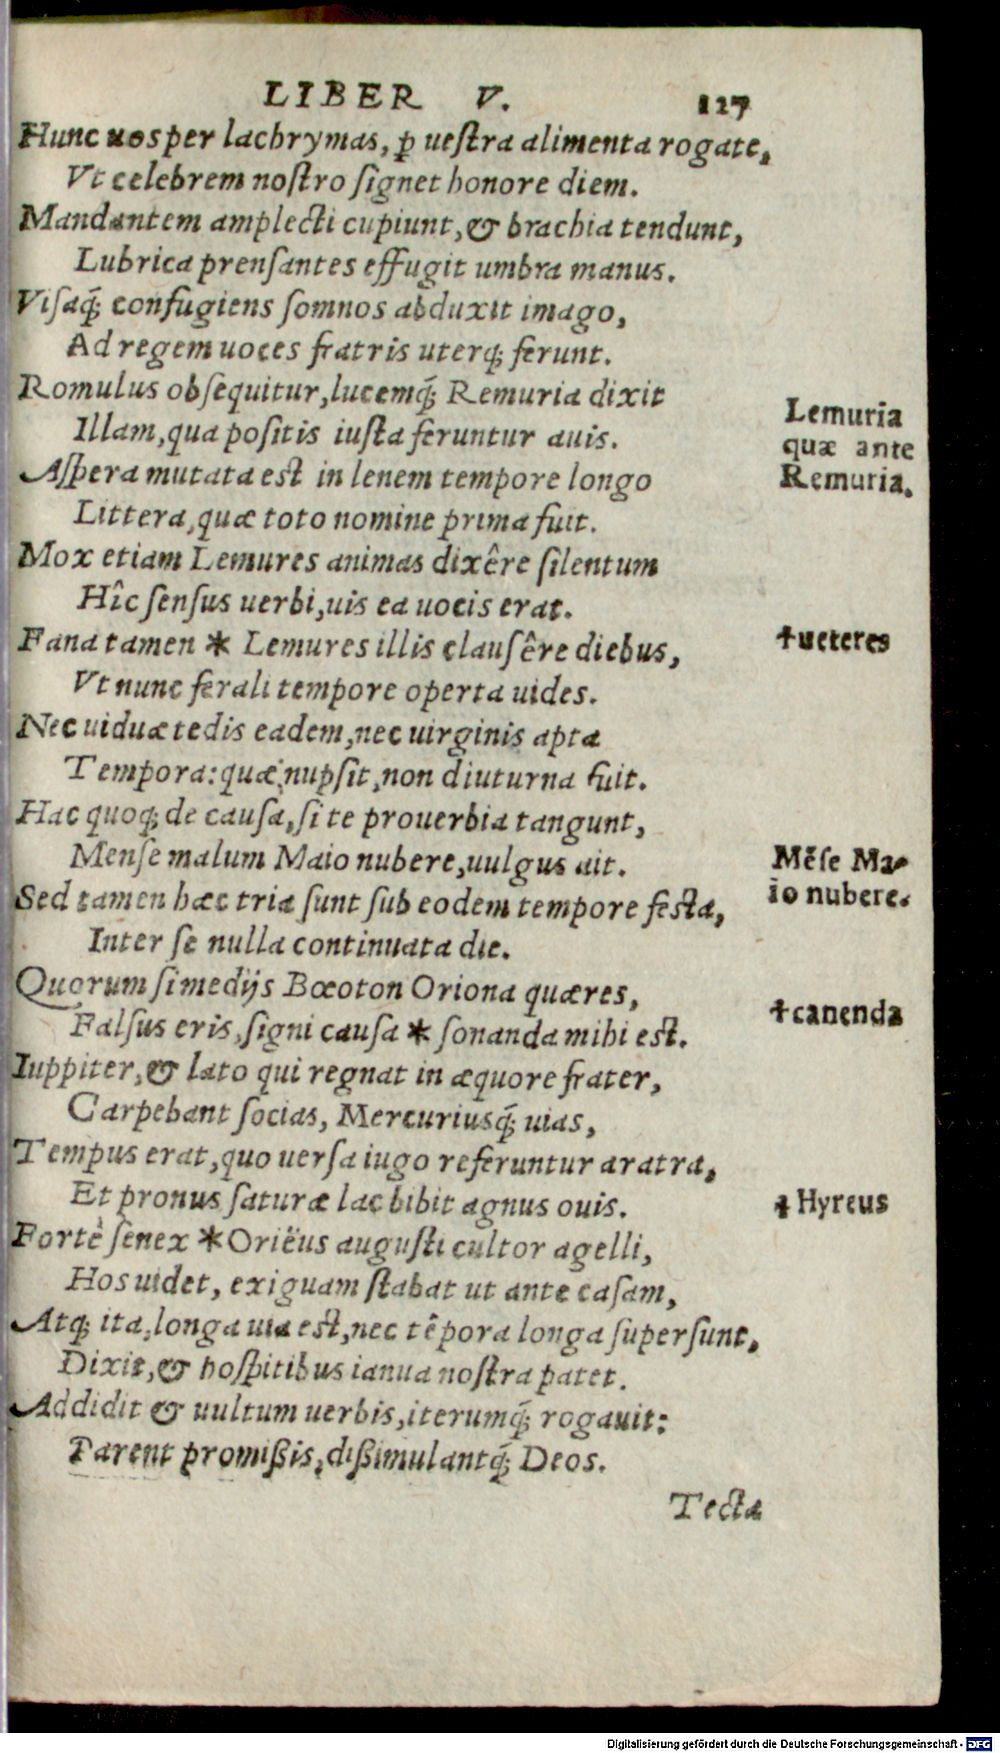 LIBER V. 127
Hunc uos per lachrymas, ꝑ uestra alimenta rogate,
Vt celebrem nostro signet honore diem.
Mandantem amplecti cupiunt, & brachia tendunt,
Lubrica prensantes effugit umbra manus.
Visaq́; confugiens somnos abduxit imago,
Ad regem uoces fratris uterq; ferunt.
Romulus obsequitur, lucemq́; Remuria dixit
Illam, qua positis iusta feruntur auis.
Lemuria
quæ ante
Remuria.
Aspera mutata est in lenem tempore longo
Littera, quæ toto nomine prima fuit.
Mox etiam Lemures animas dixêre silentum
Hîc sensus uerbi, uis ea uocis erat.
Fana tamen * Lemures illis clausêre diebus,
†ueteres
Vt nunc ferali tempore operta uides.
Nec uiduæ tedis eadem, nec uirginis apta
Tempora: quæ nupsit, non diuturna fuit.
Hac quoq; de causa, si te prouerbia tangunt,
Mense malum Maio nubere, uulgus ait.
Mẽse Ma-
io nubere.
Sed tamen hæc tria sunt sub eodem tempore festa,
Inter se nulla continuata die.
Quorum si medijs Bœoton Oriona quæres,
Falsus eris, signi causa * sonanda mihi est.
†canenda
Iuppiter, & lato qui regnat in æquore frater,
Carpebant socias, Mercuriusq́; uias,
Tempus erat, quo uersa iugo referuntur aratra,
Et pronus saturæ lac bibit agnus ouis.
Fortè senex *Oriëus augusti cultor agelli,
†Hyreus
Hos uidet, exiguam stabat ut ante casam,
Atq; ita, longa uia est, nec têpora longa supersunt,
Dixit, & hospitibus ianua nostra patet.
Addidit & uultum uerbis, iterumq́; rogauit:
Parent promißis, dißimulantq́; Deos.
Tecta
Digitalisierung gefördert durch die Deutsche Forschungsgemeinschaft - DFG